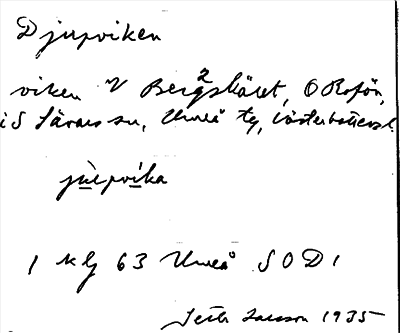 Djupviken
viken V Bergskäret, O Rofön,
i S Sävars sn, Umeå tg, Västerbottens l.
2
jùpvíka
1 klg 63 Umeå SO D1
Larsson 1935